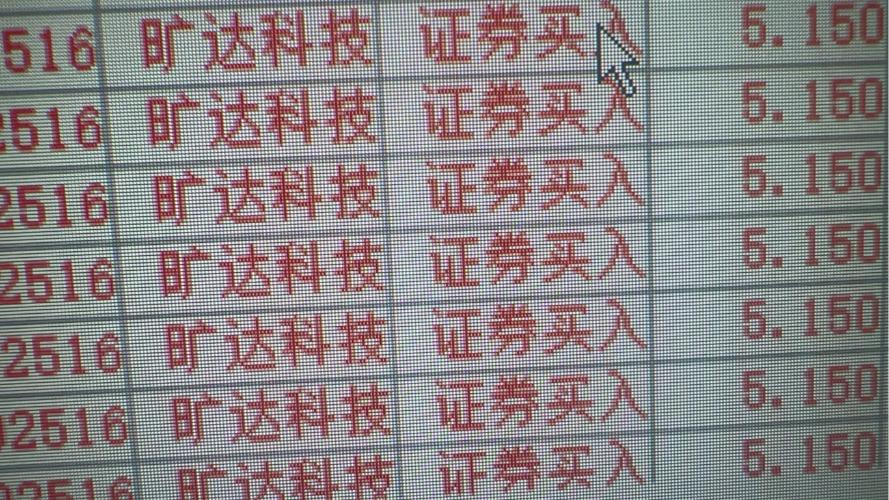 516 旷达科技 证券买入 5.150
2516 旷达科技 证券买入 5.150
2516 旷达科技 证券买入 5.150
2516 旷达科技 证券买入 5.150
2516 旷达科技 证券买入 5.150
02516 旷达科技 证券买入 5.150
02516 旷达科技 证券买入 5.150